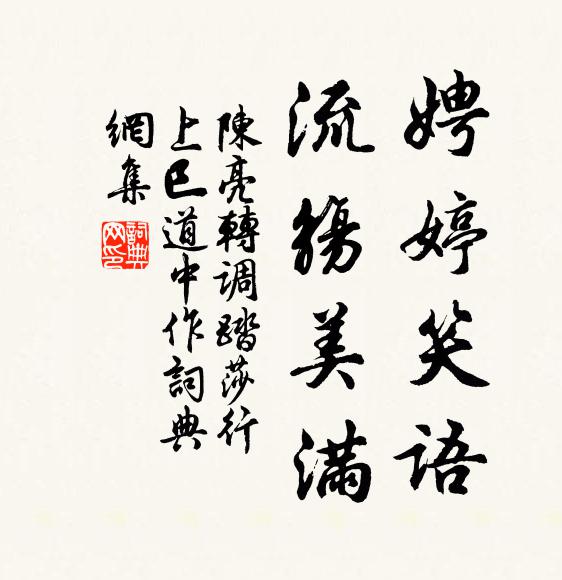 娉婷笑語
流觴美滿
陳亮轉調踏莎行
上巳道中作詞典
網集
詞典網印